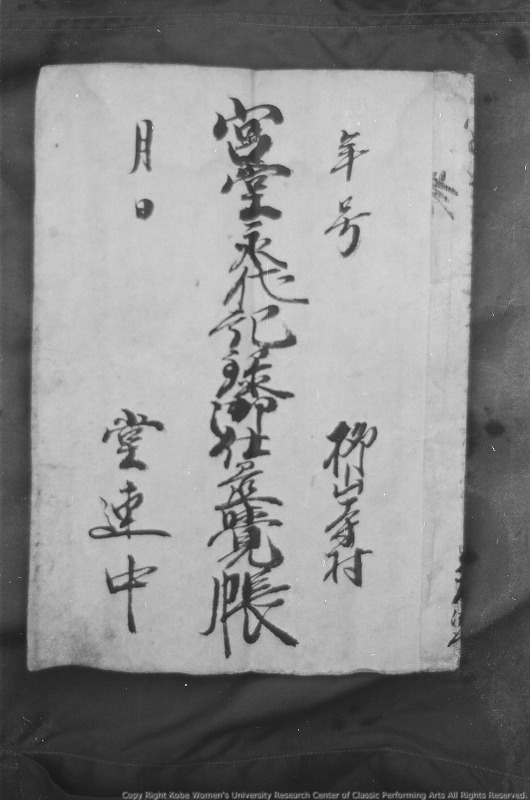 年号
柳山寺村
宮堂永代記録御仕置覚帳
月日
堂連中
Copy Right Kobe Women's University Research Center of Classic Performing Arts All Rights Reserved.